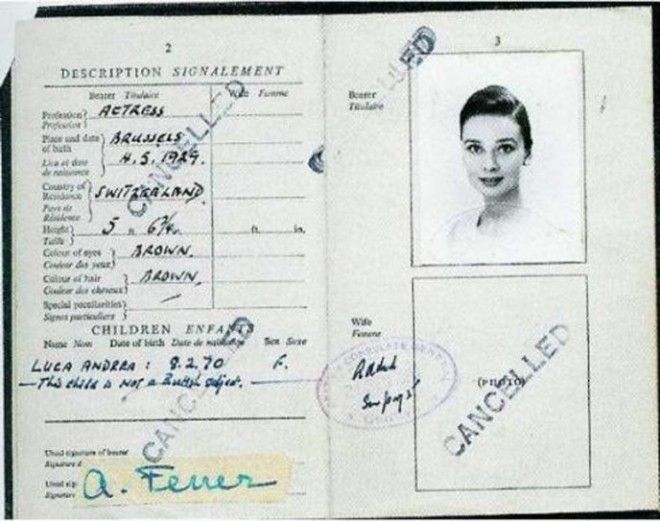 2
DESCRIPTION SIGNALEMENT
Bearer Titulaire
Wife Femme
Profession
Profession
ACTRESS
Place and date of birth
Lieu et date de naissance
BRUSSELS
4.5.1929.
Country of Residence
Pays de Résidence
SWITZERLAND
Height
Taille
5 ft. 6¾ in.
ft. in.
Colour of eyes
Couleur des yeux
BROWN.
Colour of hair
Couleur des cheveux
BROWN.
Special peculiarities
Signes particuliers
CANCELLED
CHILDREN ENFANTS
Name Nom Date of birth Date de naissance Sex Sexe
LUCA ANDREA : 8.2.70 F.
This child is not a British subject.
CANCELLED
Usual signature of bearer
Signature
Usual
Signature
A. Ferrer
3
Bearer
Titulaire
Wife
Femme
(PHOTO)
CANCELLED